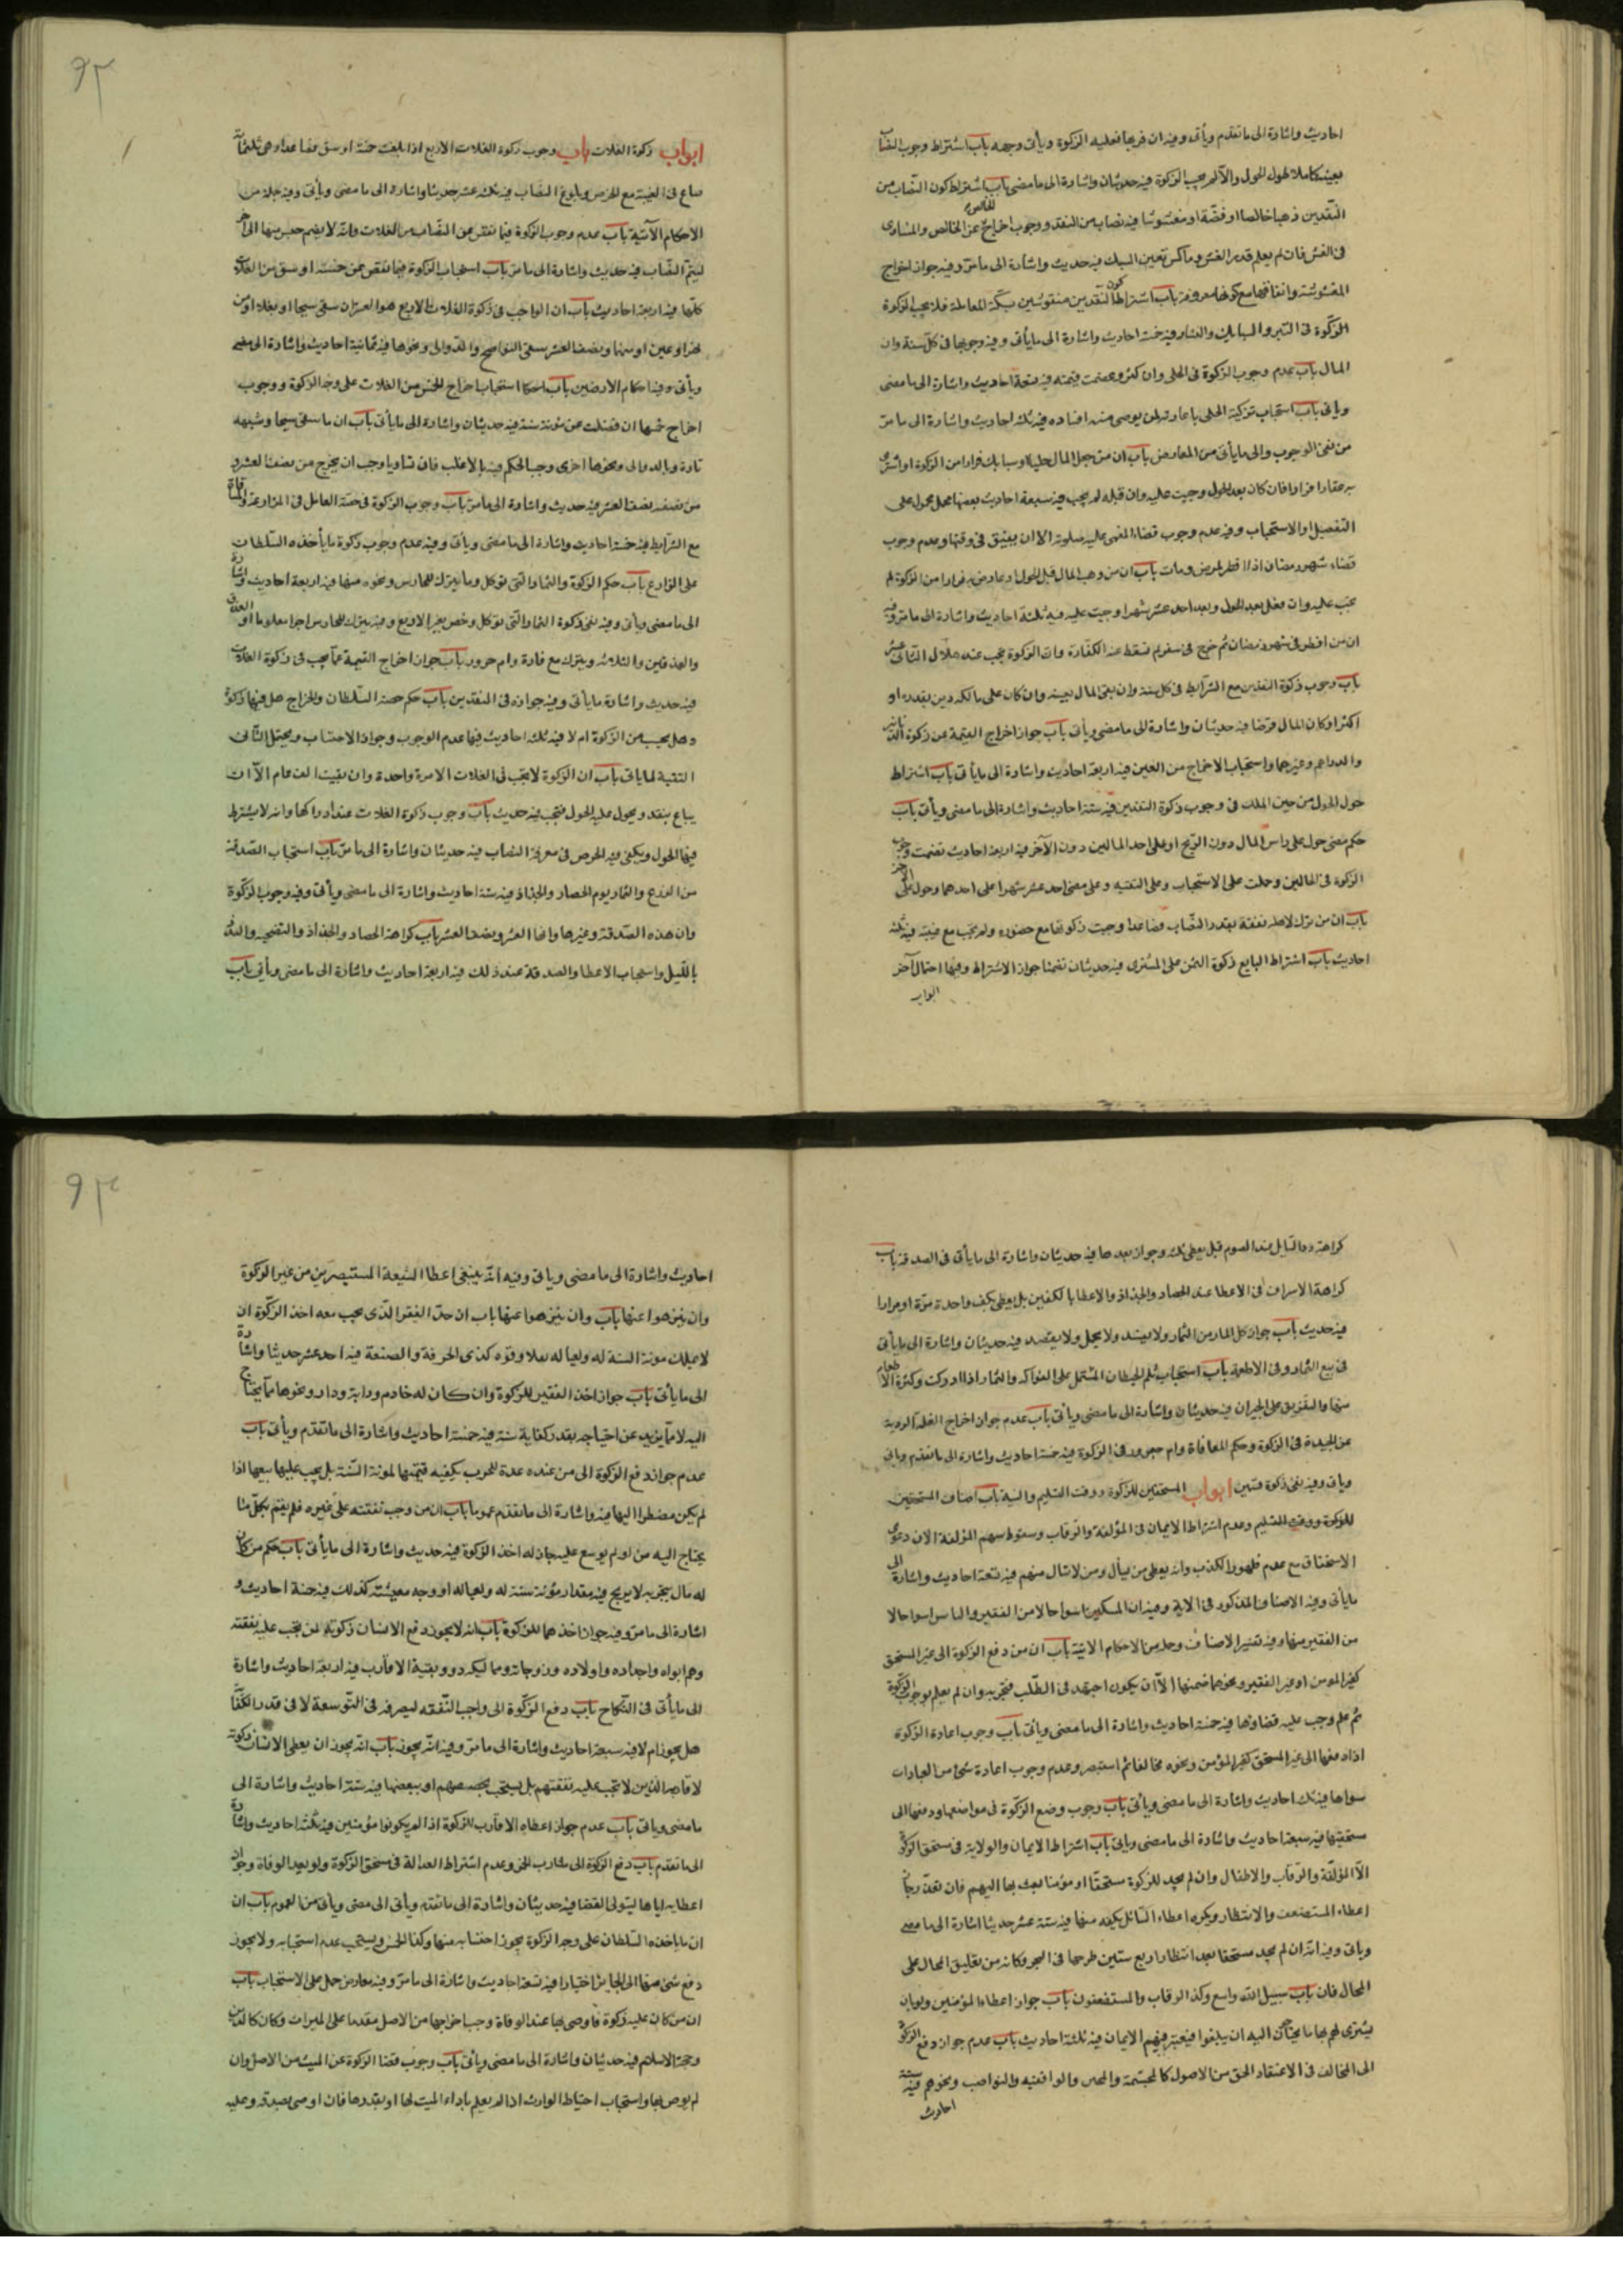 احاديث واشارة الى ما تقدم ويأتى وفيه ان فر بها فعليه الزكوة ويأتى وجهه باب اشتراط وجوب النصاب
بعينه كاملا طول الحول والا لم يجب الزكوة فيه حديثان واشارة الى ما مضى باب اشتراط كون النصاب من
النقدين ذهبا خالصا او فضة او مغشوشا فيه نصاب من النقد ووجوب اخراج الخالص عن الخالص والمساوى
فى الغش فان لم يعلم قدر الغش وماكس تعين السبك فيه حديث واشارة الى ما مر وفيه جواز اخراج
المغشوشة وانفاقها مع كونها معروفة باب اشتراط كون النقدين منقوشين بسكة المعاملة فلا يجب الزكوة
الزكوة فى التبر والسبايك والنقار فيه خمسة احاديث واشارة الى ما يأتى وفيه وجوبها فى كل سنة وان
المال باب عدم وجوب الزكوة فى الحلى وان كثر وعظمت قيمته فيه تسعة احاديث واشارة الى ما مضى
ويأتى باب استحباب تزكية الحلى باعارته لمن يؤمن منه افساده فيه ثلثة احاديث واشارة الى ما مر
من نفى الوجوب والى ما يأتى من المعارض باب ان من جعل المال حليا او سبايك فرارا من الزكوة او اشترى
به عقارا فرارا فان كان بعد الحول وجبت عليه وان قبله لم يجب فيه سبعة احاديث بعضها محمول على
التفصيل او الاستحباب وفيه عدم وجوب قضاء المغمى عليه صلوته الا ان يفيق فى وقتها وعدم وجوب
قضاء شهر رمضان اذا افطر لمرض ومات باب ان من وهب المال قبل الحول او عاوض به فرارا من الزكوة لم
تجب عليه وان فعل بعد الحول وبعد احد عشر شهرا وجبت عليه فيه ثلثة احاديث واشارة الى ما مر وفيه
ان من افطر فى شهر رمضان ثم خرج فى سفر لم تسقط عنه الكفارة وان الزكوة تجب عند هلال الثانى عشر
باب وجوب زكوة النقدين مع الشرايط فى كل سنة وان بقى المال بعينه وان كان على مالكه دين بقدره او
اكثر او كان المال قرضا فيه حديثان واشارة الى ما مضى ويأتى باب جواز اخراج القيمة عن زكوة الدنانير
والدراهم وغيرهما واستحباب الاخراج من العين فيه اربعة احاديث واشارة الى ما يأتى باب اشتراط
حول الحول من حين الملك فى وجوب زكوة النقدين فيه ستة احاديث واشارة الى ما مضى ويأتى باب
حكم مضى حول على راس المال دون الربح او على احد المالين دون الآخر فيه اربعة احاديث تضمنت وجوب
الزكوة فى الحالين وحملت على الاستحباب وعلى التقية وعلى مضى احد عشر شهرا على احدهما وحول على الآخر
باب ان من ترك لاهله نفقة بقدر النصاب فصاعدا وجبت زكوتها مع حضوره ولم تجب مع غيبته فيه ثلثة
احاديث باب اشتراط البايع زكوة الثمن على المشترى فيه حديثان تضمنا جواز الاشتراط وفيها احتمال آخر
ابواب
ابواب زكوة الغلات باب وجوب زكوة الغلات الاربع اذا بلغت خمسة اوسق فصاعدا وهى ثلثمائة
صاع فى القيمة مع الخرص وبلوغ النصاب فيه ثلثة عشر حديثا واشارة الى ما مضى ويأتى وفيه جملة من
الاحكام الآتية باب عدم وجوب الزكوة فيما نقص عن النصاب من الغلات وانه لا يضم جنس منها الى آخر
ليتم النصاب فيه حديث واشارة الى ما مر باب استحباب الزكوة فيما نقص عن خمسة اوسق من الغلات
كلها فيه اربعة احاديث باب ان الواجب فى زكوة الغلات الاربع هو العشر ان سقى سيحا او بعلا او من
نهر او عين او سما ونصف العشر بسقى النواضح والدوالى ونحوها فيه ثمانية احاديث واشارة الى مضى
ويأتى وفيه احكام الارضين باب استحباب اخراج الخمس من الغلات على وجه الزكوة ووجوب
اخراج خمسها ان فضلت عن مؤنة سنة فيه حديثان واشارة الى ما يأتى باب ان ما سقى سيحا وشبهه
تارة وبالدوالى ونحوها اخرى وجب الحكم فيه بالاغلب فان تساويا وجب ان يخرج من نصفه العشر و
من نصفه نصف العشر فيه حديث واشارة الى ما مر باب وجوب الزكوة فى حصة العامل فى المزارعة والمساقاة
مع الشرايط فيه خمسة احاديث واشارة الى ما مضى ويأتى وفيه عدم وجوب زكوة ما يأخذه السلطان
على الزارع باب حكم الزكوة والثمار التى تؤكل وما يترك للحارس ونحوه منها فيه اربعة احاديث واشارة
الى ما مضى ويأتى وفيه نفى زكوة الثمار التى تؤكل وخص بغير الاربع وفيه يترك للحارس اجرا معلوما او العذق
والعذقين والثلاثة ويترك معافارة وام جرور باب جواز اخراج القيمة عما يجب فى زكوة الغلات
فيه حديث واشارة ما يأتى وفيه جوازه فى النقدين باب حكم حصة السلطان والخراج هل فيها زكوة
وهل يحسب من الزكوة ام لا فيه ثلثة احاديث فيها عدم الوجوب وجواز الاحتساب ويحتمل الثانى
التقية لما يأتى باب ان الزكوة لا تجب فى الغلات الا مرة واحدة وان بقيت الف عام الا ان
يباع بنقد ويحول عليه الحول فتجب فيه حديث باب وجوب زكوة الغلات عند ادراكها وانه لا يشترط
فيها الحول ويكفى فيه الخرص فى معرفة النصاب فيه حديثان واشارة الى ما مر باب استحباب الصدقة
من الزرع والثمار يوم الحصاد والجذاذ فيه ستة احاديث واشارة الى ما مضى ويأتى وفيه وجوب الزكوة
وان هذه الصدقة وغيرها وانها العشر ونصف العشر باب كراهة الحصاد والجذاذ والتضحية والبذر
بالليل واستحباب الاعطا والصدقة عند ذلك فيه اربعة احاديث واشارة الى ما مضى ويأتى باب
كراهة رد السايل عند الصرم قبل يعطى ثلثة وجواز بعدها فيه حديثان واشارة الى ما يأتى فى الصدقة باب
كراهة الاسراف فى الاعطا عند الحصاد والجذاذ والاعطا بالكفين بل يعطى بكف واحدة مرة او مرارا
فيه حديث باب جواز اكل المار من الثمار ولا يفسد ولا يحمل ولا يقصد فيه حديثان واشارة الى ما يأتى
فى بيع الثمار وفى الاطعمة باب استحباب ثلم الحيطان المشتمل على الفواكه والثمار اذا ادركت وكثرة الاطعام
منها والتفريق على الجيران فيه حديثان واشارة الى ما مضى ويأتى باب عدم جواز اخراج الغلة الردية
عن الجيدة فى الزكوة وحكم المعافاة وام جعرور فى الزكوة فيه خمسة احاديث واشارة الى ما تقدم ويأتى
ويأتى وفيه نفى زكوة فتين ابواب المستحقين للزكوة ووقت التسليم والنية باب اصناف المستحقين
للزكوة ووقت التسليم وعدم اشتراط الايمان فى المؤلفة والرقاب وسقوط سهم المؤلفة الان دعوى
الاستحقاق مع عدم ظهور الكذب وانه يعطى من يسأل ومن لا يسأل منهم فيه تسعة احاديث واشارة الى
ما يأتى وفيه الاصناف المذكور فى الاية وفيه ان المسكين اسوا حالا من الفقير والبائس اسوا حالا
من الفقير منها وفيه تفسير الاصناف وجملة من الاحكام الاتية باب ان من دفع الزكوة الى غير المستحق
كغير المؤمن او غير الفقير ونحوهما ضمنها الا ان يكون اجتهد فى الطلب فتجزيه وان لم يعلم بوجوب الزكوة
ثم علم وجب عليه قضاؤها فيه خمسة احاديث واشارة الى ما مضى ويأتى باب وجوب اعادة الزكوة
اذا دفعها الى غير المستحق كغير المؤمن ونحوه مخالفا ثم استبصر وعدم وجوب اعادة شئ من العبادات
سواها فيه ثلثة احاديث واشارة الى ما مضى ويأتى باب وجوب وضع الزكوة فى مواضعها ودفعها الى
مستحقها فيه سبعة احاديث واشارة الى ما مضى ويأتى باب اشتراط الايمان والولاية فى مستحق الزكوة
الا المؤلفة والرقاب والاطفال وان لم يجد للزكوة مستحقا او مؤمنا بعث بها اليهم فان تعذر جاز
اعطاء المستضعف والانتظار ويكره اعطاء السائل بكفه منها فيه ستة عشر حديثا اشارة الى ما مضى
ويأتى وفيه انه ان لم يجد مستحقا بعد انتظار اربع سنين طرحها فى البحر وكانه من تعليق المحال على
المحال فان باب سبيل الله واسع وكذا الرقاب والمستضعفون باب جواز اعطاء المؤمنين ولو بان
يشترى لهم بها ما يحتاجون اليه ان يبلغوا فيعتبر فيهم الايمان فيه ثلثة احاديث باب عدم جواز دفع الزكوة
الى المخالف فى الاعتقاد الحق من الاصول كالمجسمة والمجبر والواقفية والنواصب ونحوهم فيه ستة
احاديث
احاديث واشارة الى ما مضى وياتى وفيه انه ينبغى اعطا الشيعة المستبصرين من غير الزكوة
وان يتنزهوا عنها باب وان يتنزهوا عنها باب ان حد الفقر الذى يجب معه اخذ الزكوة ان
لا يملك مونة السنة له ولعياله فعلا وقوة كذى الحرفة والصنعة فيه احد عشر حديثا واشارة
الى ما يأتى باب جواز اخذ الفقير للزكوة وان كان له خادم ودابة ودار ونحوها مما يحتاج
اليه لا ما يزيد عن احتياجه بقدر كفاية سنة فيه خمسة احاديث واشارة الى ما تقدم ويأتى باب
عدم جواز دفع الزكوة الى من عنده عدة للحرب يكفيه قيمتها لمونة السنة بل يجب عليها بيعها اذا
لم يكن مضطرا اليها فيه واشارة الى ما تقدم عموما باب ان من وجب نفقته على غيره فلم يقم بكل ما
يحتاج اليه من لو لم يوسع عليه جاز له اخذ الزكوة فيه حديث واشارة الى ما يأتى باب حكم من كان
له مال يتجر به لا يربح فيه مقدار مؤنة سنة له ولعياله او وجه معيشته كذلك فيه خمسة احاديث و
اشارة الى ما مر وفيه جواز اخذهما للزكوة باب انه لا يجوز دفع الانسان زكوته لمن تجب عليه نفقته
وهم ابواه واجداده واولاده وزوجاته ومماليكه دون بقية الاقارب فيه اربعة احاديث واشارة
الى ما يأتى فى النكاح باب دفع الزكوة الى واجب النفقه ليصرفه فى التوسعة لا فى قدر الكفاية
هل يجوز ام لا فيه سبعة احاديث واشارة الى ما مر وفيه انه يجوز باب انه يجوز ان يعطى الانسان زكوته
لاقاربه الذين لا تجب عليه نفقتهم بل يستحب تخصيصهم او ببعضها فيه ستة احاديث واشارة الى
ما مضى وياتى باب عدم جواز اعطاء الاقارب للزكوة اذا لم يكونوا مؤمنين فيه ثلثة احاديث واشارة
الى ما تقدم باب دفع الزكوة الى شارب الخمر وعدم اشتراط العدالة فى مستحق الزكوة ولو بعد الوفاة وجواز
اعطايه اياها ليتولى القضا فيه حديثان واشارة الى ما تقدم ويأتى الى مضى ويأتى من العموم باب ان
ان ما ياخذه السلطان على وجه الزكوة يجوز احتسابه منها وكذا الخمس ويستحب عدم احتسابه ولا يجوز
دفع شئ منها الى الجاير اختيارا فيه تسعة احاديث واشارة الى ما مر وفيه معارض حمل على الاستحباب باب
ان من كان عليه زكوة فاوصى بها عند الوفاة وجب اخراجها من الاصل مقدما على الميراث وكان كالدين
وحجة الاسلام فيه حديثان واشارة الى ما مضى ويأتى باب وجوب قضا الزكوة عن الميت من الاصل وان
لم يوص بها واستحباب احتياط الوارث اذا لم يعلم باداء الميت لها او بقدرها فان اوصى بصدقة وعليه